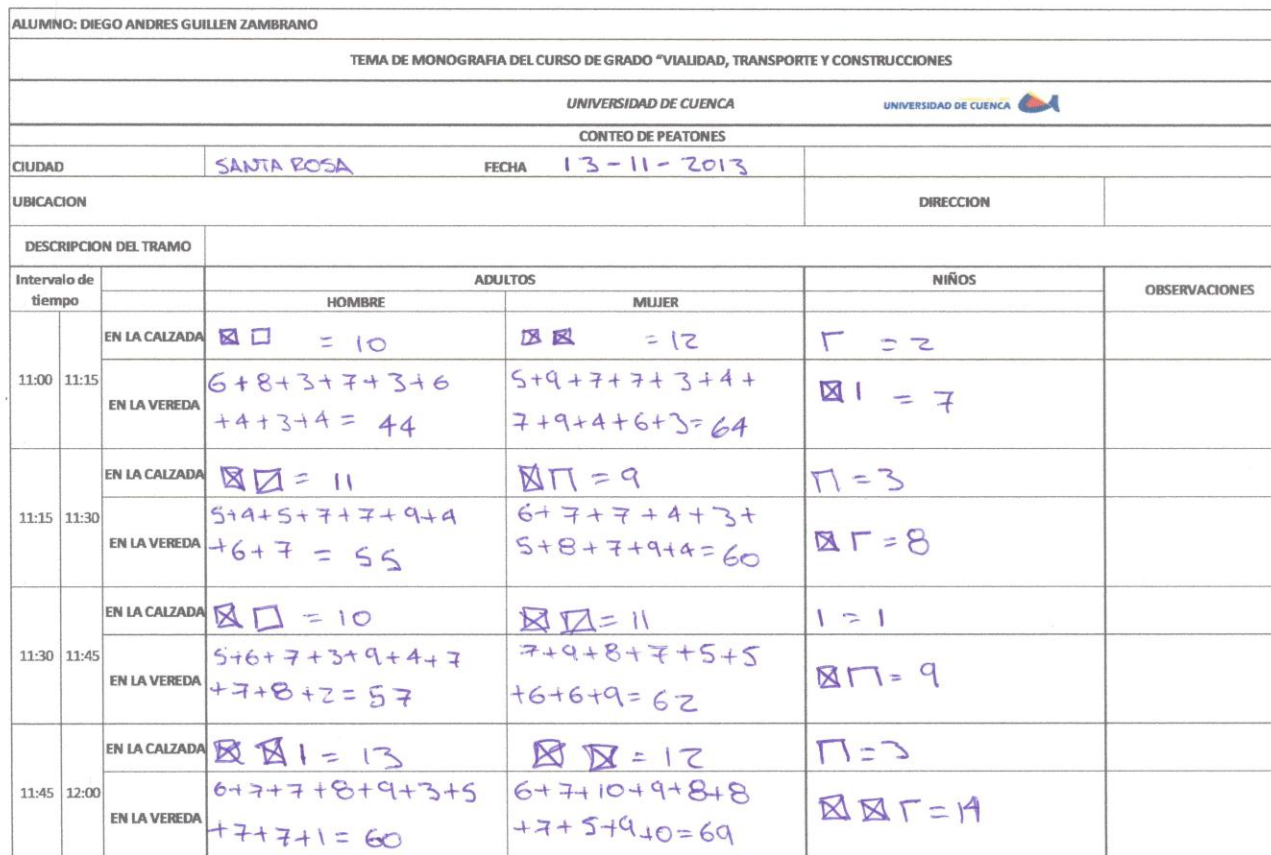 ALUMNO: DIEGO ANDRES GUILLEN ZAMBRANO
TEMA DE MONOGRAFIA DEL CURSO DE GRADO "VIALIDAD, TRANSPORTE Y CONSTRUCCIONES
UNIVERSIDAD DE CUENCA UNIVERSIDAD DE CUENCA
CONTEO DE PEATONES
CIUDAD SANTA ROSA FECHA 13-11-2013
UBICACION DIRECCION
DESCRIPCION DEL TRAMO
Intervalo de tiempo ADULTOS NIÑOS OBSERVACIONES
HOMBRE MUJER
EN LA CALZADA = 10 = 12 = 2
11:00 11:15 EN LA VEREDA
6+8+3+7+3+6
+4+3+4= 44
5+9+7+7+3+4+
7+9+4+6+3=64
= 7
EN LA CALZADA = 11 = 9 = 3
11:15 11:30 EN LA VEREDA
5+4+5+7+7+9+4
+6+7 = 55
6+7+7+4+3+
5+8+7+9+4=60
= 8
EN LA CALZADA = 10 = 11 1 = 1
11:30 11:45 EN LA VEREDA
5+6+7+3+9+4+7
+7+8+2=57
7+9+8+7+5+5
+6+6+9=62
= 9
EN LA CALZADA = 13 = 12 = 3
11:45 12:00 EN LA VEREDA
6+7+7+8+9+3+5
+7+7+1=60
6+7+10+9+8+8
+7+5+9+0=69
= 14